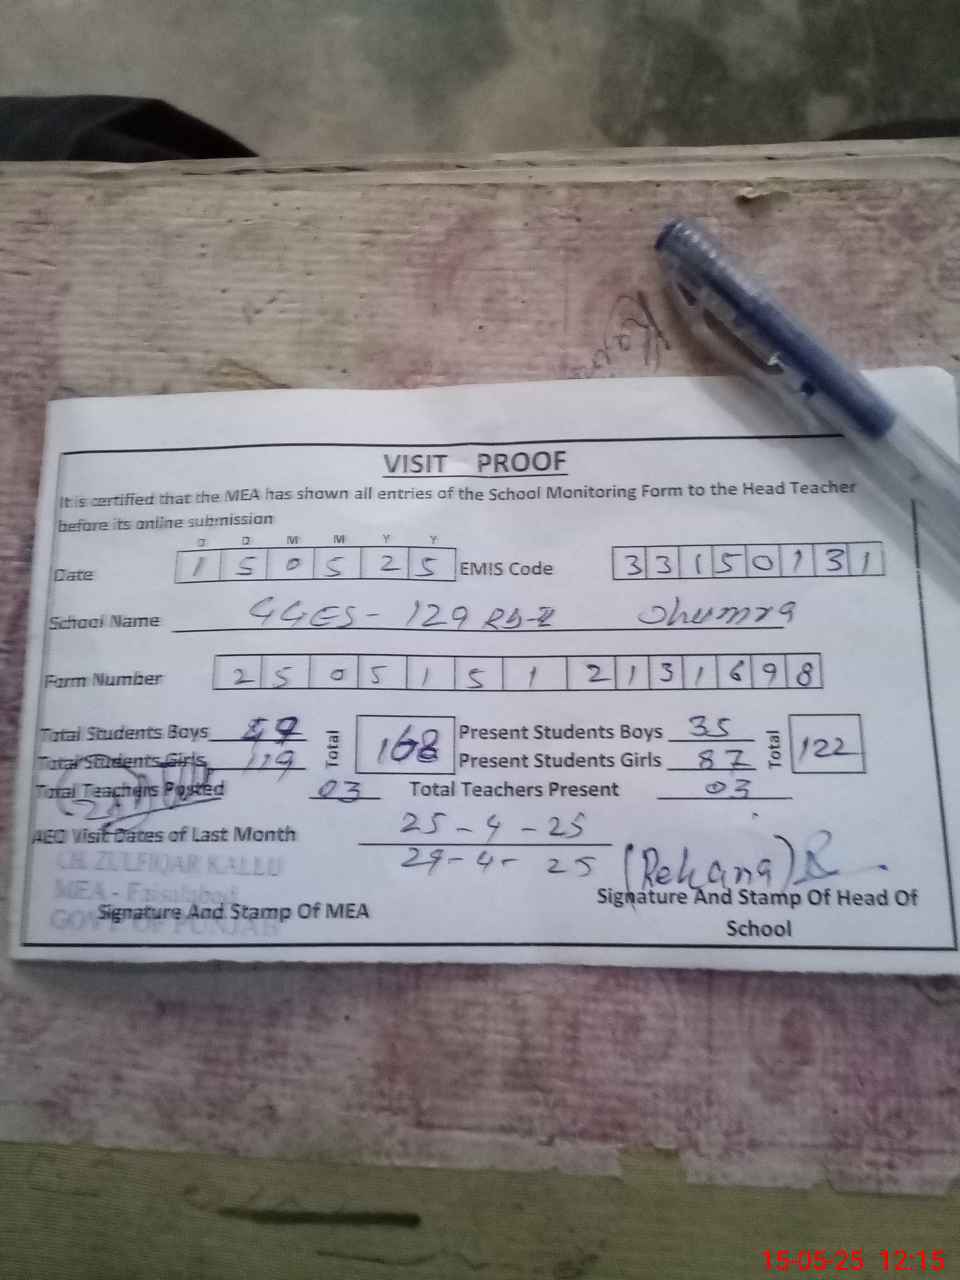 VISIT PROOF
It is certified that the MEA has shown all entries of the School Monitoring Form to the Head Teacher
before its online submission
D D M M Y Y
Date 1 5 0 5 2 5 EMIS Code 3 3 1 5 0 1 3 1
School Name GGES - 129 RB-2 Jhumra
Form Number 2 5 0 5 1 5 1 2 1 3 1 6 9 8
Total Students Boys 49 Total 168 Present Students Boys 35 Total 122
Total Students Girls 119 Present Students Girls 87
Total Teachers Posted 03 Total Teachers Present 03
AEO Visit Dates of Last Month 25-4-25
29-4-25 (Rehana)
CH. ZULFIQAR KALLU
MEA - Faisalabad
GOVT OF PUNJAB
Signature And Stamp Of MEA Signature And Stamp Of Head Of
School
15-05-25 12:15